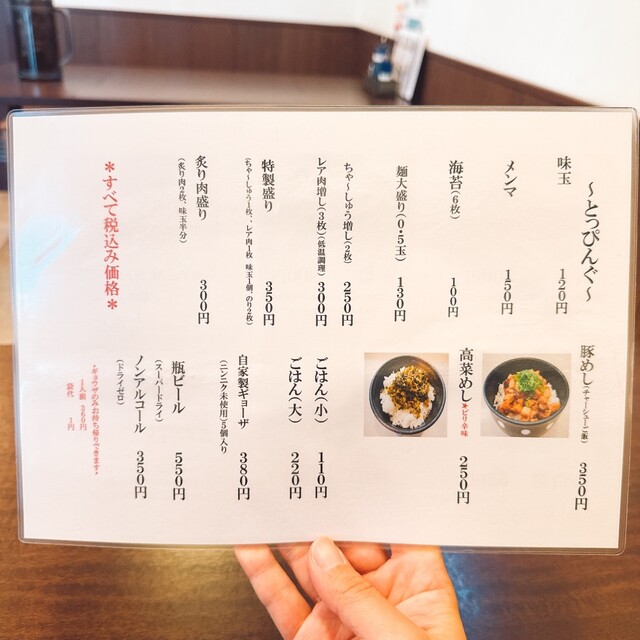 ～とっぴんぐ～
味玉 120円
メンマ 150円
海苔(6枚) 100円
麺大盛り(0・5玉) 130円
ちゃ～しゅう増し(2枚) 250円
レア肉増し(3枚)(低温調理) 300円
特製盛り 350円
(ちゃ～しゅう1枚、レア肉1枚 味玉1個、のり2枚)
炙り肉盛り 300円
(炙り肉2枚、味玉半分)
＊すべて税込み価格＊
豚めし(チャーシューご飯) 350円
高菜めし＊ピリ辛味 250円
ごはん(小) 110円
ごはん(大) 220円
自家製ギョーザ 380円
(ニンニク未使用)5個入り
瓶ビール 550円
(スーパードライ)
ノンアルコール 350円
(ドライゼロ)
ギョウザのみお持ち帰りできます
1人前
袋代 1円